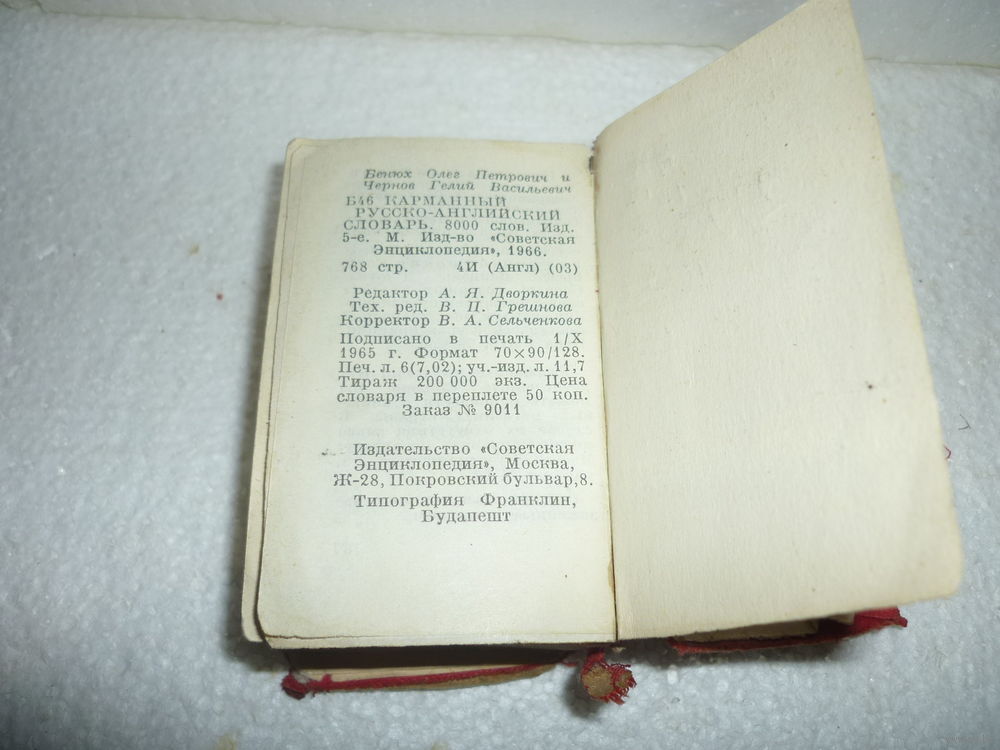 Бенюх Олег Петрович и
Чернов Гелий Васильевич
Б46 КАРМАННЫЙ
РУССКО-АНГЛИЙСКИЙ
СЛОВАРЬ. 8000 слов. Изд.
5-е. М. Изд-во «Советская
Энциклопедия», 1966.
768 стр. 4И (Англ) (03)
Редактор А. Я. Дворкина
Тех. ред. В. П. Грешнова
Корректор В. А. Сельченкова
Подписано в печать 1/X
1965 г. Формат 70×90/128.
Печ. л. 6(7,02); уч.-изд. л. 11,7
Тираж 200 000 экз. Цена
словаря в переплете 50 коп.
Заказ № 9011
Издательство «Советская
Энциклопедия», Москва,
Ж-28, Покровский бульвар,8.
Типография Франклин,
Будапешт